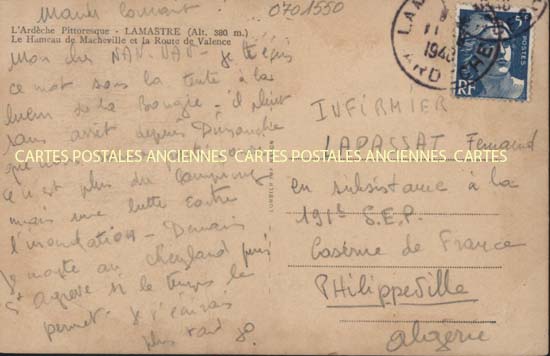 Mardi
0701550
L'Ardèche Pittoresque - LAMASTRE (Alt. 380 m.)
Le Hameau de Macheville et la Route de Valence
Mon
ce mot sous la tente à la
lueur de la Bougie - il pleut
sans arrêt depuis Dimanche
que nous
ce n'est plus du camping
mais une lutte contre
l'inondation - Demain
je monte au cheylard puis
St agrève si le temps le
permet - je t'écrirai
plus tard
CARTES POSTALES ANCIENNES CARTES POSTALES ANCIENNES CARTES
LAMASTRE
ARDECHE
5F
POSTES
RF
INFIRMIER
LAPASSAT Fernand
en subsistance à la
191e S.E.P.
Caserne de France
PHILIPPEVILLE
Algérie